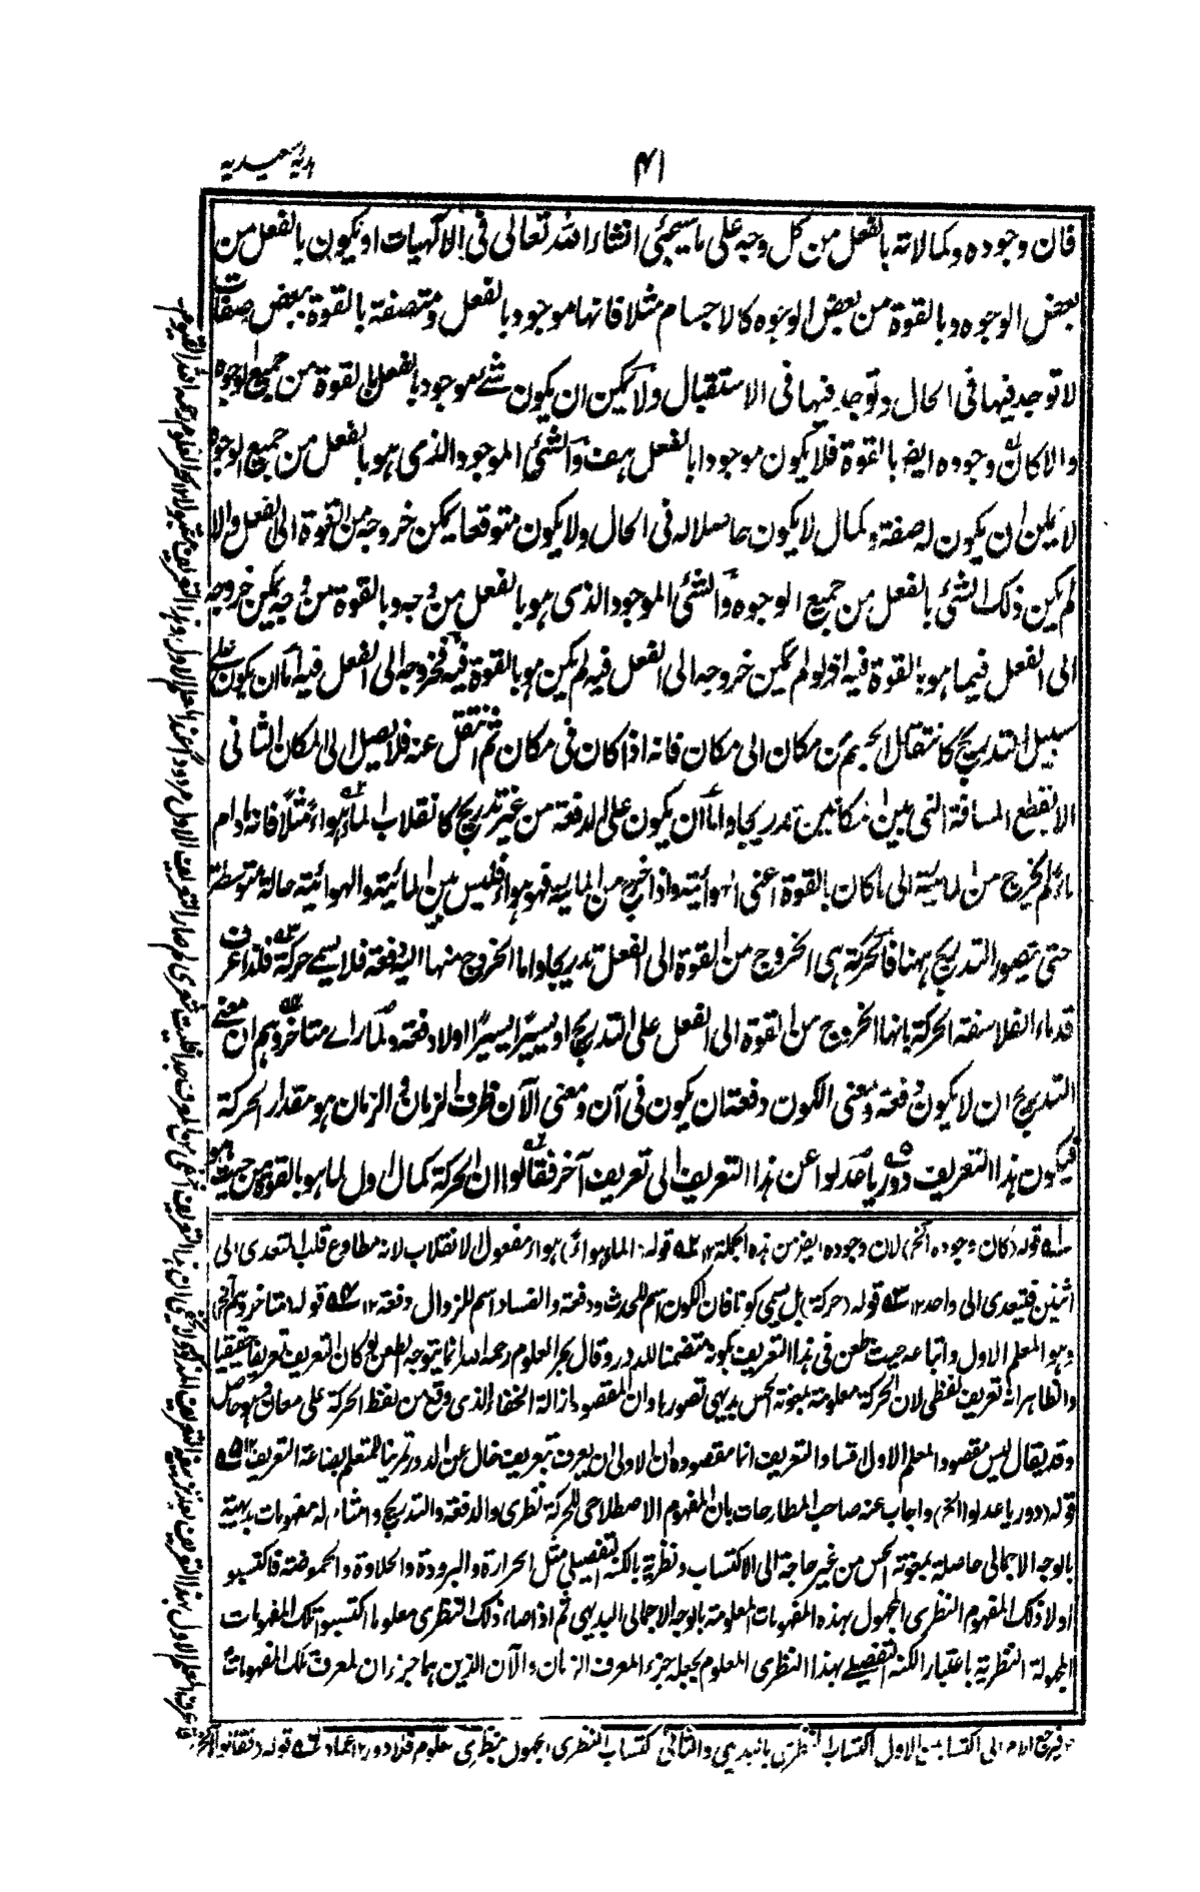 ٤١
هدیہ سعیدیہ
فان وجوده وكمالاته بالفعل من كل وجه على ما سيجئ انشاء الله تعالى فى الالٰهيات او يكون بالفعل من
بعض الوجوه وبالقوة من بعض الوجوه كالاجسام مثلا فانها موجود بالفعل ومتصفة بالقوة ببعض صفات
لا توجد فيها فى الحال وتوجد فيها فى الاستقبال ولا يمكن ان يكون شئ موجود بالفعل بالقوة من جميع الوجوه
والا كان وجوده ايضا بالقوة فلا يكون موجودا بالفعل هف والشئ الموجود الذى هو بالفعل من جميع الوجوه
لا يمكن ان يكون له صفة وكمال لا يكون حاصلا له فى الحال ولا يكون متوقعا يمكن خروجه من القوة الى الفعل والا
لم يكن ذلك الشئ بالفعل من جميع الوجوه والشئ الموجود الذى هو بالفعل من وجه وبالقوة من وجه يمكن خروجه
الى الفعل فيما هو بالقوة فيه اذ لو لم يمكن خروجه الى الفعل فيه لم يكن هو بالقوة فيه فخروجه الى الفعل فيه اما ان يكون على
سبيل التدريج كانتقال الجسم من مكان الى مكان فانه اذا كان فى مكان ثم انتقل عنه فلا يصل الى المكان الثانى
الا بقطع المسافة التى بين المكانين تدريجا واما ان يكون على الدفعة من غير تدريج كانقلاب الماء هواء مثلا فانه مادام
ماء لم يخرج من المائية الى ما كان بالقوة اعنى الهوائية واذا خرج من المائية فهو هواء فليس بين المائية والهوائية حالة متوسطة
حتى يتصور التدريج ههنا فالحركة هى الخروج من القوة الى الفعل تدريجا واما الخروج منها اليه دفعة فلا يسمى حركة فلذا عرف
قدماء الفلاسفة الحركة بانها الخروج من القوة الى الفعل على التدريج او يسيرا يسيرا او لا دفعة ولما راے متاخروهم ان معنى
التدريج ان لا يكون دفعة ومعنى الكون دفعة ان يكون فى آن ومعنى الآن طرف الزمان والزمان هو مقدار الحركة
فيكون هذا التعريف دوريا عدلوا عن هذا التعريف الى تعريف آخر فقالوا ان الحركة كمال اول لما هو بالقوة من حيث هو
قوله (كان وجوده الخ) لان وجوده ايضا من هذه الجملة ١٢ قوله (الماء هواء) هواء مفعول الانقلاب لانه مطاوع قلب المتعدى الى
اثنين فيتعدى الى واحد ١٢ قوله (حركة) بل يسمى كونا فان الكون اسم للحدوث دفعة والفساد اسم للزوال دفعة ١٢ قوله (متاخروهم الخ)
وهو المعلم الاول واتباعه حيث طعن فى هذا التعريف بكونه متضمنا للدور وقال بحر العلوم رحمه الله انما يتوجه الطعن لو كان التعريف تعريفا حقيقيا
والظاهر انه تعريف لفظى لان الحركة معلومة بمعونة الحس بديهى تصورها وان المقصود ازالة الخفاء الذى وقع من لفظ الحركة على معان
وقد يقال ليس مقصود المعلم الاول افساد التعريف انما مقصوده ان الاولى ان يعرف بتعريف خال عن الدور تمرينا للمتعلم بصناعة التعريف ١٢
قوله (دوريا عدلوا الخ) واجاب عنه صاحب المطارحات بان المفهوم الاصطلاحى للحركة نظرى والدفعة والتدريج وامثاله مفهومات بديهية
بالوجه الاجمالى حاصلة بمعونة الحس من غير حاجة الى الاكتساب ونظرية بالكنه التفصيلى مثل الحرارة والبرودة والحلاوة والحموضة فاكتسبو
اولا ذلك المفهوم النظرى المجهول بهذه المفهومات المعلومة بالوجه الاجمالى البديهى ثم اذا صار ذلك النظرى معلوما اكتسبوا تلك المفهومات
المجهولة النظرية باعتبار الكنه التفصيلے بهذا النظرى المعلوم بجعله جزء المعرف الزمان والآن الذين هما جزءان لمعرف تلك المفهومات
فيرجع الامر الى اكتسابين الاول اكتساب النظرى بالبديهى والثانى اكتساب النظرى المجهول بنظرى معلوم فلا دور ١٢ عماد قوله (فقالوا الخ)